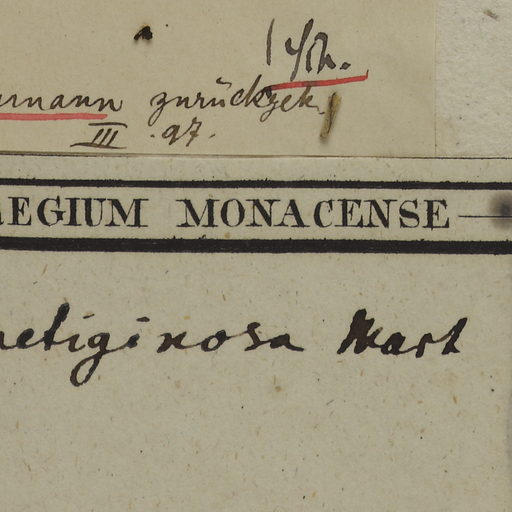 rmann zurückgek.
III. 97.
AEGIUM MONACENSE
netiginosa Mart